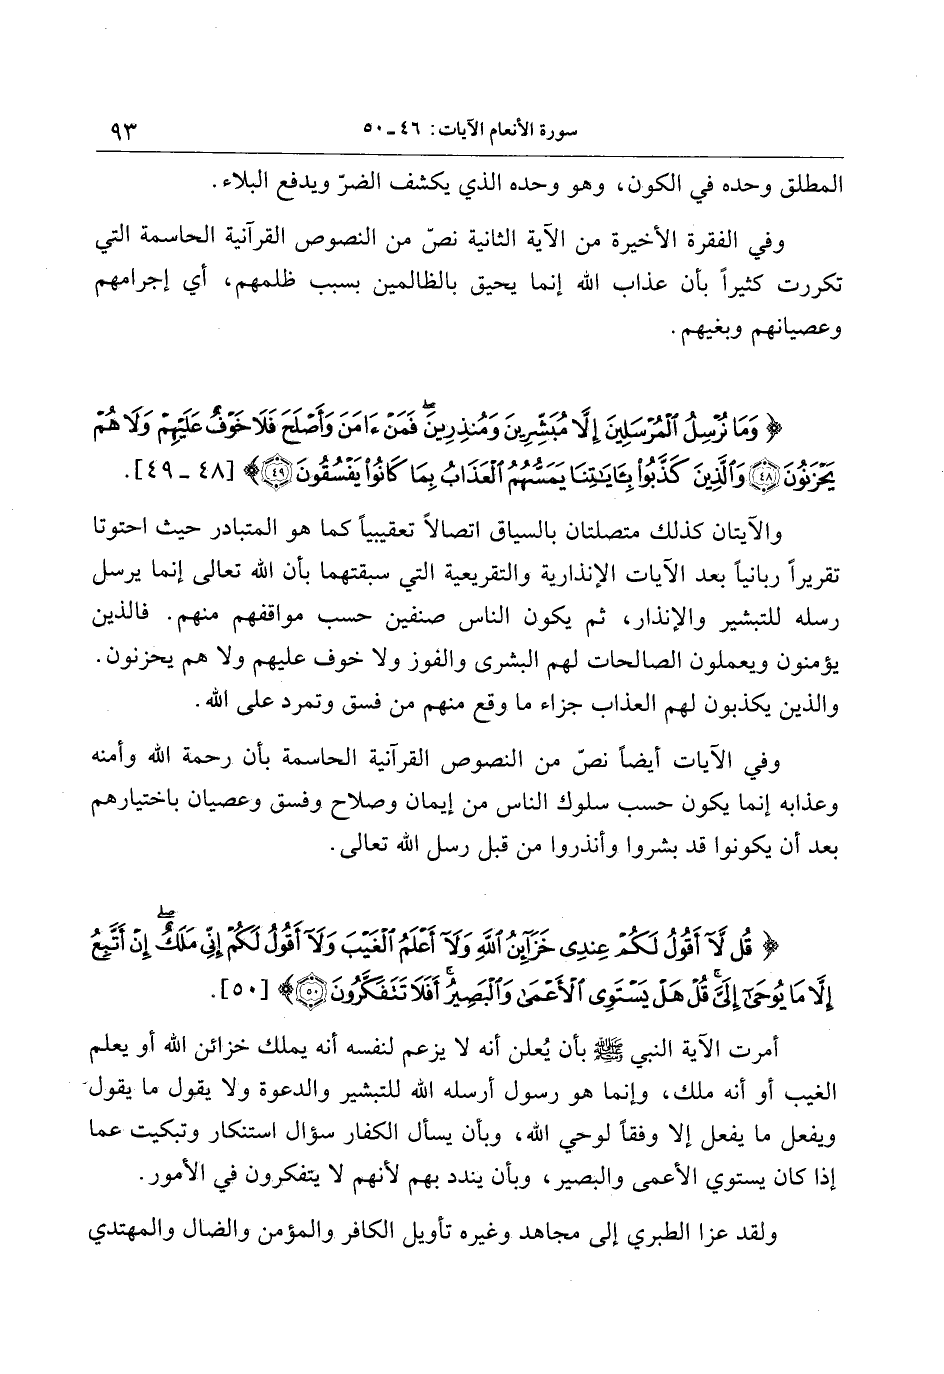 سورة الأنعام الآيات: ٤٦ـ٥٠ ٩٣
المطلق وحده في الكون، وهو وحده الذي يكشف الضرّ ويدفع البلاء.
وفي الفقرة الأخيرة من الآية الثانية نصّ من النصوص القرآنية الحاسمة التي
تكررت كثيراً بأن عذاب الله إنما يحيق بالظالمين بسبب ظلمهم، أي إجرامهم
وعصيانهم وبغيهم.
﴿ وَمَا نُرْسِلُ ٱلْمُرْسَلِينَ إِلَّا مُبَشِّرِينَ وَمُنذِرِينَۖ فَمَنْ ءَامَنَ وَأَصْلَحَ فَلَا خَوْفٌ عَلَيْهِمْ وَلَا هُمْ
يَحْزَنُونَ ﴿٤٨﴾ وَٱلَّذِينَ كَذَّبُوا۟ بِـَٔايَـٰتِنَا يَمَسُّهُمُ ٱلْعَذَابُ بِمَا كَانُوا۟ يَفْسُقُونَ ﴿٤٩﴾ ﴾ [٤٨ ـ ٤٩].
والآيتان كذلك متصلتان بالسياق اتصالاً تعقيبياً كما هو المتبادر حيث احتوتا
تقريراً ربانياً بعد الآيات الإنذارية والتقريعية التي سبقتهما بأن الله تعالى إنما يرسل
رسله للتبشير والإنذار، ثم يكون الناس صنفين حسب مواقفهم منهم. فالذين
يؤمنون ويعملون الصالحات لهم البشرى والفوز ولا خوف عليهم ولا هم يحزنون.
والذين يكذبون لهم العذاب جزاء ما وقع منهم من فسق وتمرد على الله.
وفي الآيات أيضاً نصّ من النصوص القرآنية الحاسمة بأن رحمة الله وأمنه
وعذابه إنما يكون حسب سلوك الناس من إيمان وصلاح وفسق وعصيان باختيارهم
بعد أن يكونوا قد بشروا وأنذروا من قبل رسل الله تعالى.
﴿ قُل لَّآ أَقُولُ لَكُمْ عِندِى خَزَآئِنُ ٱللَّهِ وَلَآ أَعْلَمُ ٱلْغَيْبَ وَلَآ أَقُولُ لَكُمْ إِنِّى مَلَكٌۖ إِنْ أَتَّبِعُ
إِلَّا مَا يُوحَىٰٓ إِلَىَّۚ قُلْ هَلْ يَسْتَوِى ٱلْأَعْمَىٰ وَٱلْبَصِيرُۚ أَفَلَا تَتَفَكَّرُونَ ﴿٥٠﴾ ﴾ [٥٠].
أمرت الآية النبي ﷺ بأن يُعلن أنه لا يزعم لنفسه أنه يملك خزائن الله أو يعلم
الغيب أو أنه ملك، وإنما هو رسول أرسله الله للتبشير والدعوة ولا يقول ما يقول
ويفعل ما يفعل إلا وفقاً لوحي الله، وبأن يسأل الكفار سؤال استنكار وتبكيت عما
إذا كان يستوي الأعمى والبصير، وبأن يندد بهم لأنهم لا يتفكرون في الأمور.
ولقد عزا الطبري إلى مجاهد وغيره تأويل الكافر والمؤمن والضال والمهتدي